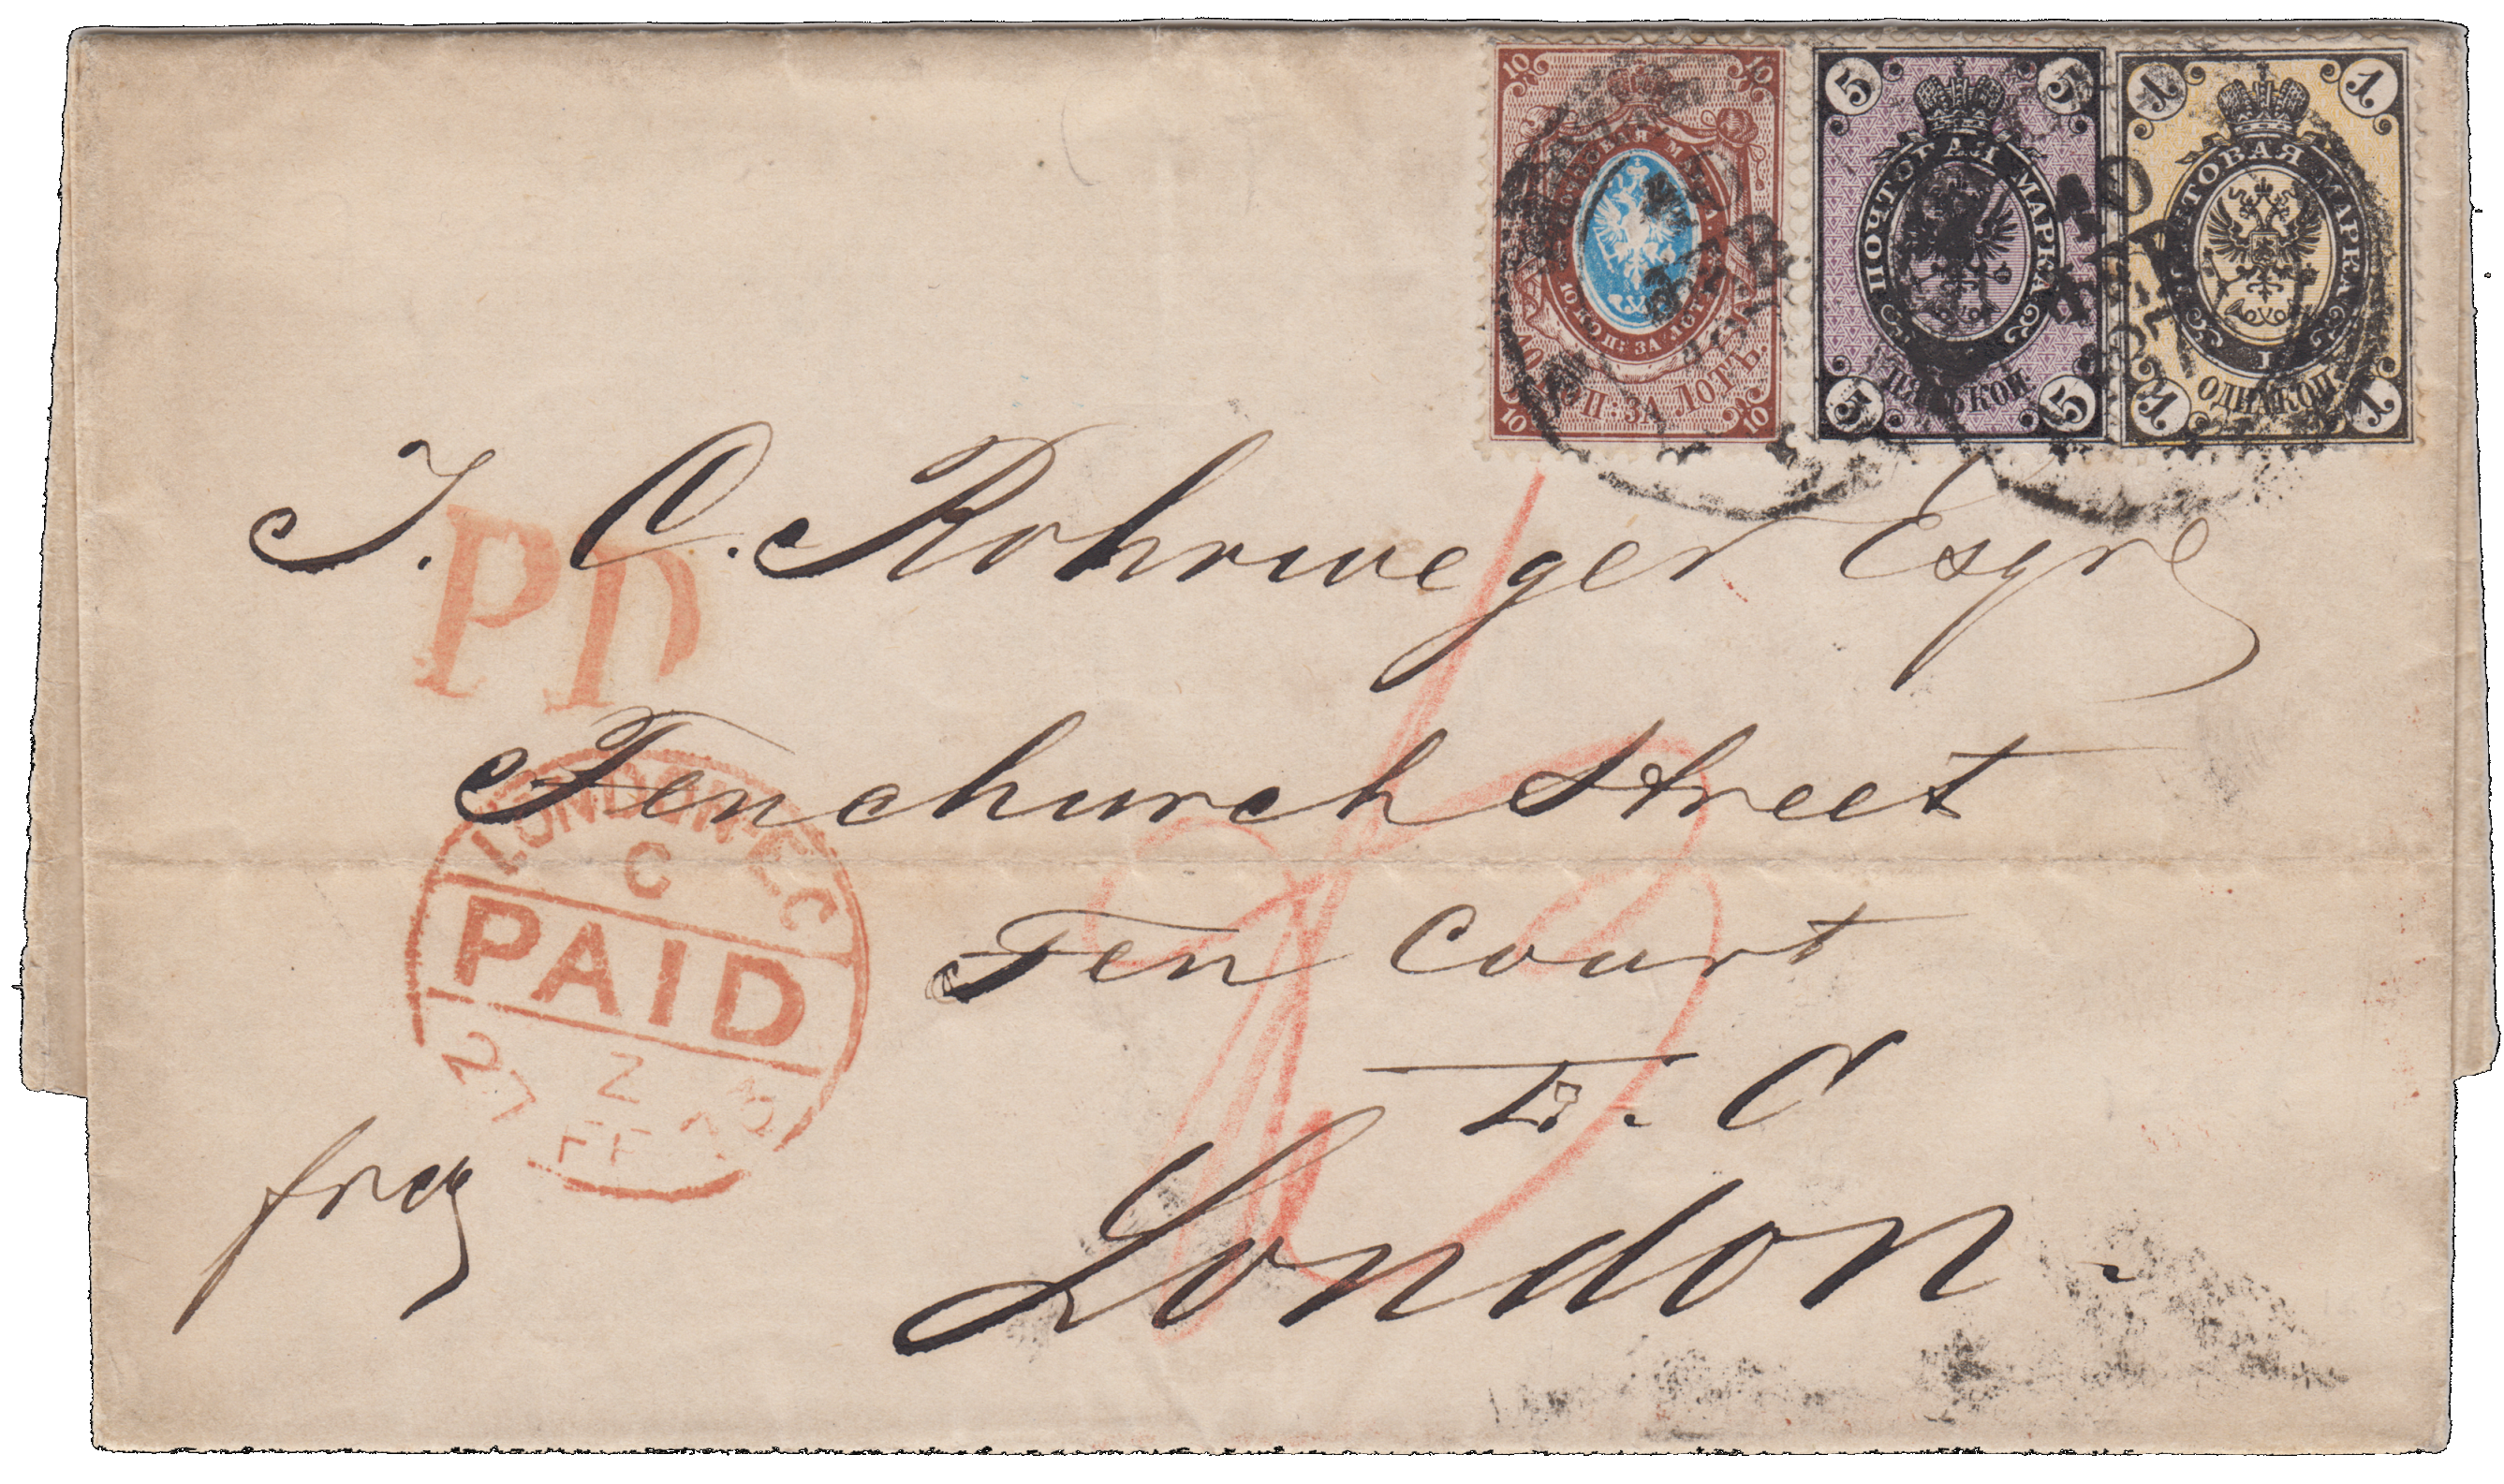 10 10
ПОЧТОВАЯ МАРКА
10 КОП: ЗА ЛОТЪ.
10 КОП: ЗА ЛОТЪ.
10 10
5 5
ПОЧТОВАЯ МАРКА
5
ПЯТЬ КОП.
5 5
1 1
ПОЧТОВАЯ МАРКА
1
ОДНА КОП.
1 1
J. C. Rohrweger Esqre
PD
Fenchurch Street
LONDON E C
C
PAID
Fen Court
27 Z 73
FE
E. C
London.